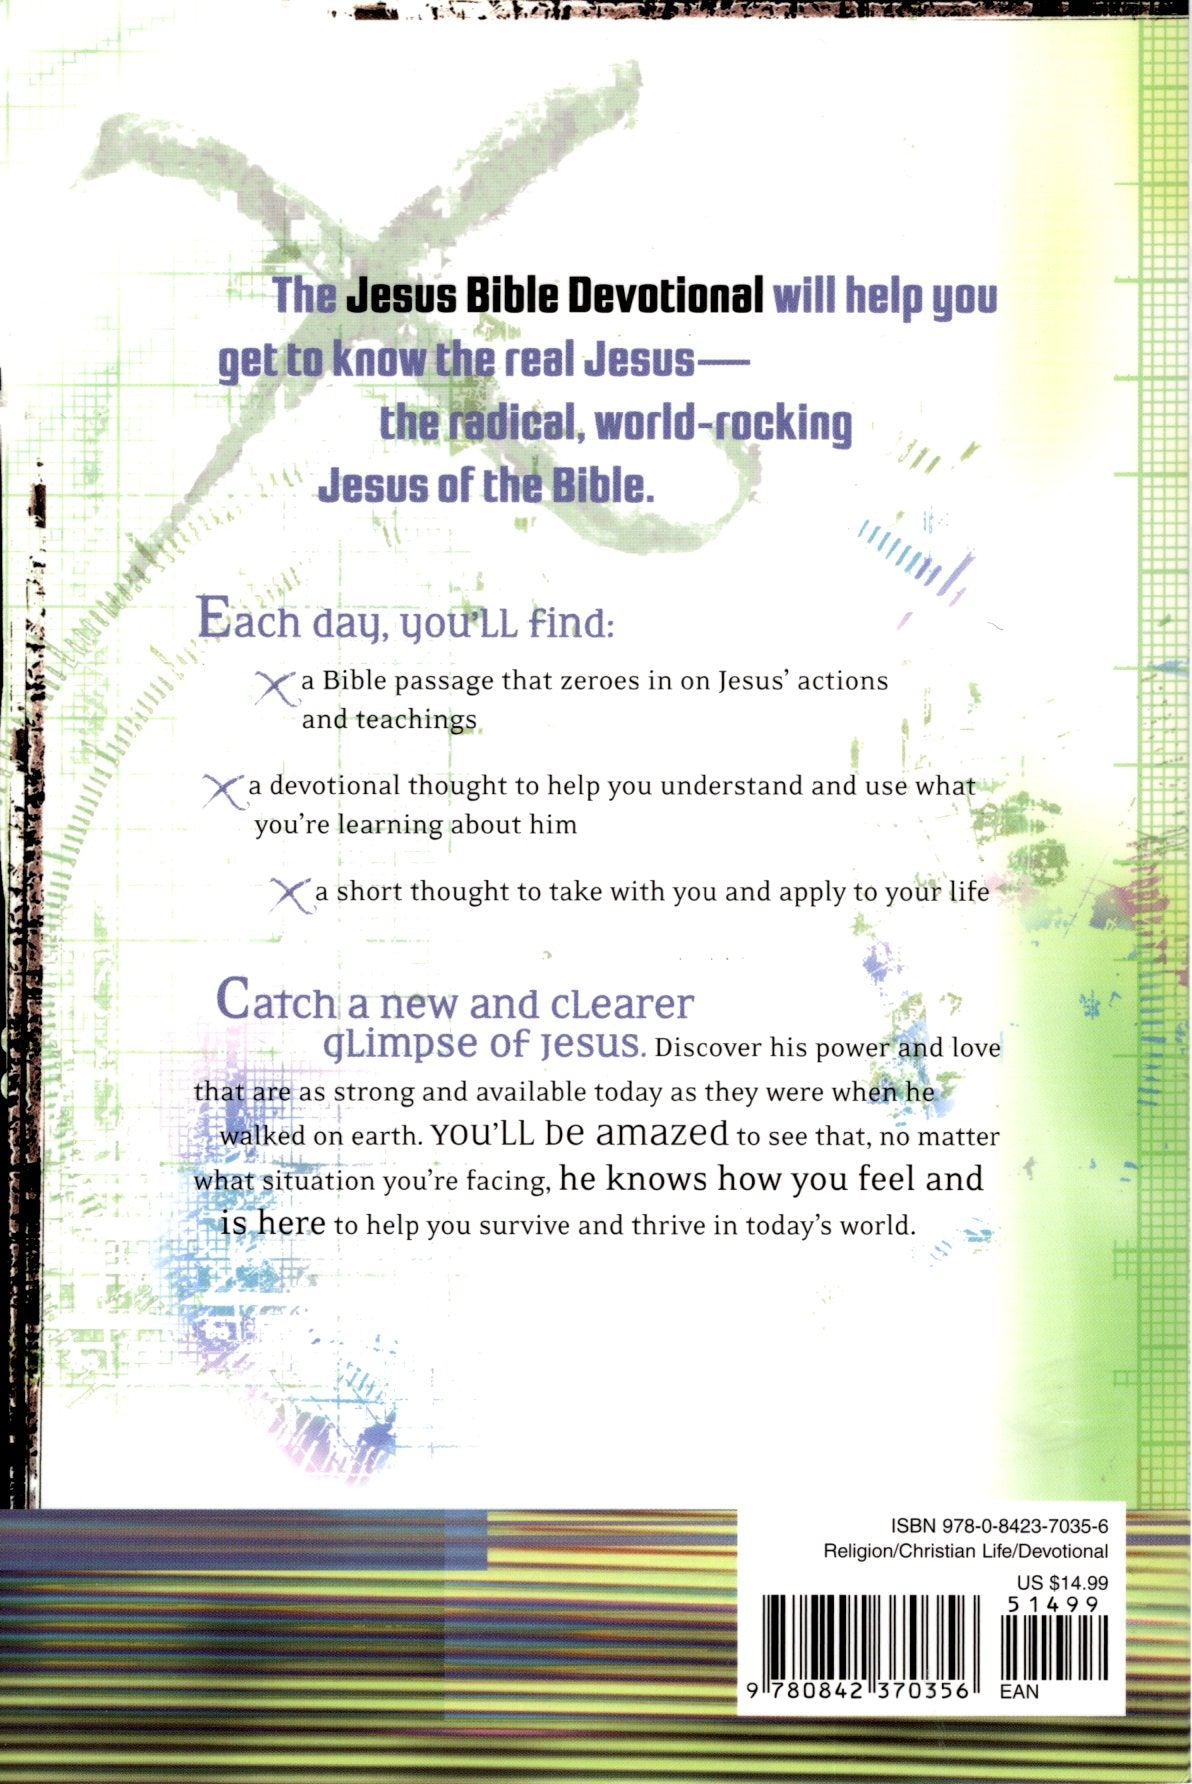 The Jesus Bible Devotional will help you
get to know the real Jesus—
the radical, world-rocking
Jesus of the Bible.
Each day, you'll find:
a Bible passage that zeroes in on Jesus' actions
and teachings
a devotional thought to help you understand and use what
you're learning about him
a short thought to take with you and apply to your life
Catch a new and clearer
glimpse of Jesus. Discover his power and love
that are as strong and available today as they were when he
walked on earth. You'll be amazed to see that, no matter
what situation you're facing, he knows how you feel and
is here to help you survive and thrive in today's world.
ISBN 978-0-8423-7035-6
Religion/Christian Life/Devotional
US $14.99
51499
9 780842 370356
EAN